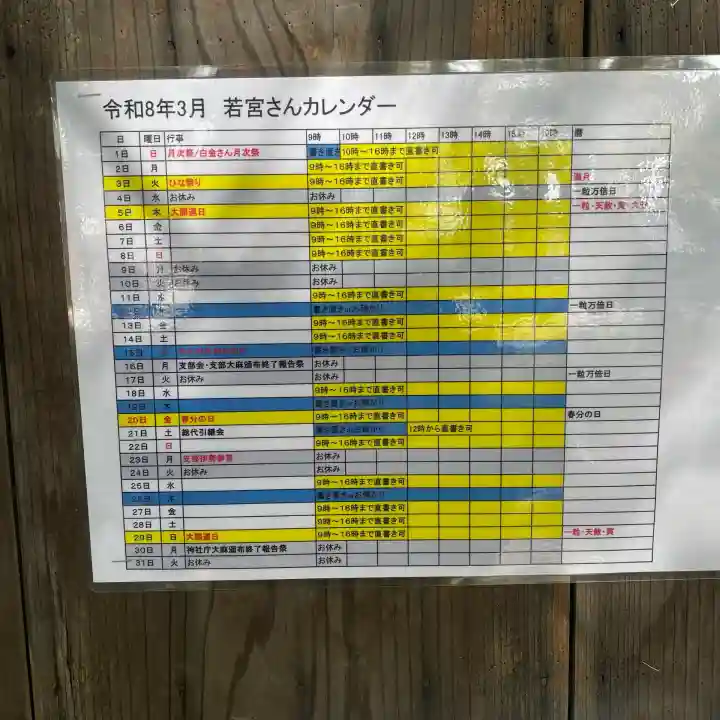 令和8年3月 若宮さんカレンダー
日 曜日 行事 9時 10時 11時 12時 13時 14時 暦
1日 日 月次祭/白金さん月次祭 10時～16時まで直書き可
2日 月 9時～16時まで直書き可
3日 火 ひな祭り 9時～16時まで直書き可 満月
4日 水 お休み お休み 一粒万倍日
5日 木 大願道日 9時～16時まで直書き可 一粒・天赦・寅
6日 金 9時～16時まで直書き可
7日 土 9時～16時まで直書き可
8日 日 9時～16時まで直書き可
9日 月 お休み お休み
10日 火 お休み お休み
11日 水 9時～16時まで直書き可
一粒万倍日
13日 金 9時～16時まで直書き可
14日 土 9時～16時まで直書き可
15日
16日 月 支部会・支部大麻頒布終了報告祭 お休み
17日 火 お休み お休み 一粒万倍日
18日 水 9時～16時まで直書き可
19日 木
20日 金 春分の日 9時～16時まで直書き可 春分の日
21日 土 総代引継会 12時から直書き可
22日 日 9時～16時まで直書き可
23日 月 支部伊勢参宮 お休み
24日 火 お休み お休み
25日 水 9時～16時まで直書き可
26日 木
27日 金 9時～16時まで直書き可
28日 土 9時～16時まで直書き可
29日 日 大願道日 9時～16時まで直書き可 一粒・天赦・寅
30日 月 神社庁大麻頒布終了報告祭 お休み
31日 火 お休み お休み